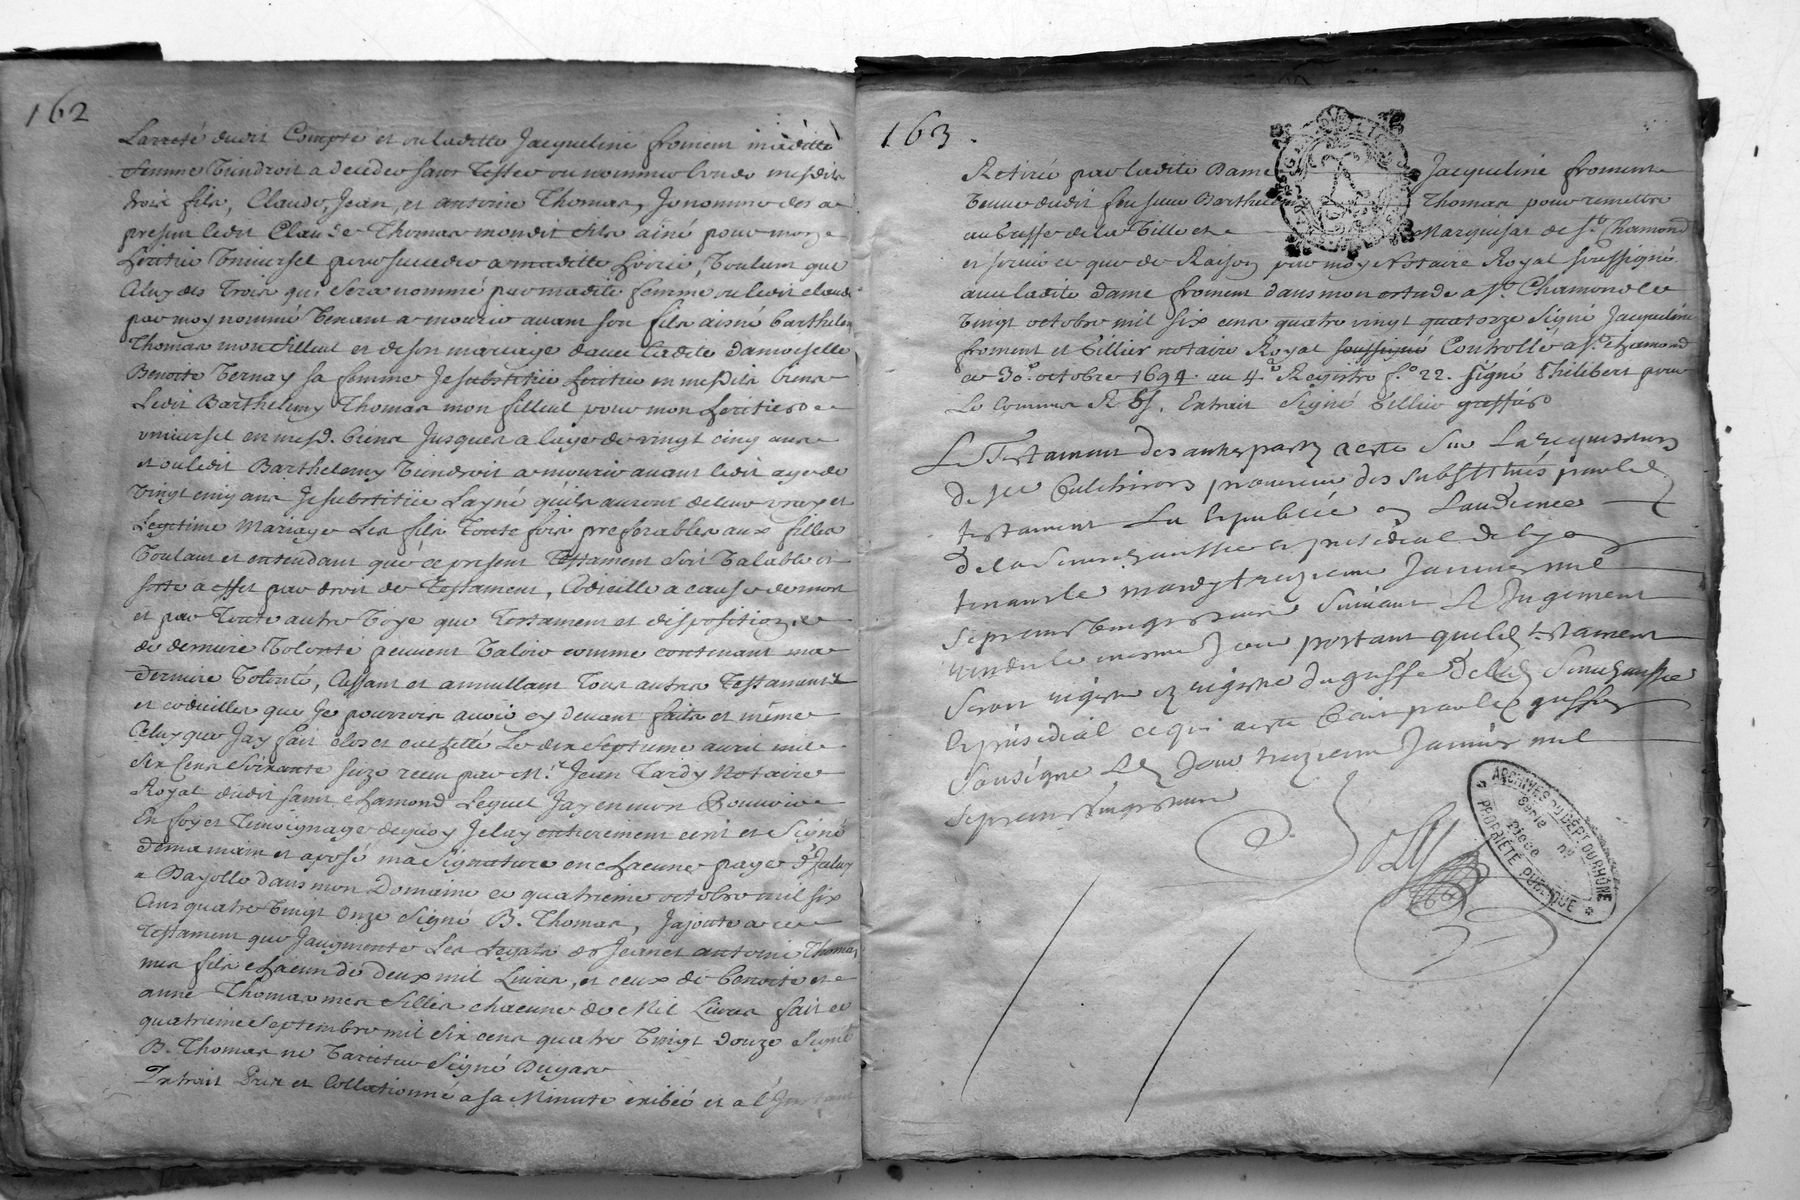 162
Larreté dudit Compte et ou laditte Jacqueline froment maditte
femme Viendroit a deceder sans Tester ou nommer lun de mesdits
trois fils, Claude, Jean, et antoine Thomas, Je nomme des a
present ledit Claude Thomas mondit fils ainé pour mon
heritier Universel pour succeder a maditte hoirie, Voulant que
Celuy des Trois qui sera nommé par madite femme ou ledit claude
par moy nommé Venant a mourir avant son fils aisné barthelemy
Thomas mon filleul et de son mariage avec ladite damoiselle
Benoite Ternay sa femme Je substitue heritier en mesdits biens
Ledit Barthelemy Thomas mon filleul pour mon heritier
universel en mesd. biens Jusques a lage de vingt cinq ans
et ou ledit Barthelemy Viendroit a mourir avant ledit age de
Vingt cinq ans Je substitue Layné quils auront de leur vray et
Legitime Mariage Les fils Toute fois preferables aux filles
Voulant et entendant que ce present Testament soit Valable et
sorte a effet par droit de Testament, Codicille a cause de mort
et par Toute autre Voye que Testament et disposition
de derniere Volonté peuvent Valoir comme contenant ma
derniere Volonté, Cassant et annullant Tous autres Testaments
et codicilles que Je pourrois avoir cy devant faits et même
Celuy que Jay fait clos et cachetté Le dix septieme avril mil
Six Cens Soixante seize receu par M.e Jean Tardy Notaire
Royal dudit saint chamond Lequel Jay en mon Pouvoir
En foy et Temoignage de quoy Je lay entierement ecrit et signé
de ma main et aposé ma signature en chacune page
a Bayolle dans mon Domaine ce quatrieme octobre mil six
Cens quatre Vingt Onze signé B. Thomas, Jajoute a ce
Testament que Jaugmente Les Legats de Jean et antoine Thomas
mes fils chacun de deux mil Livres, et ceux de benoite et
anne Thomas mes filles chacune de Mil Livres fait ce
quatrieme septembre mil six cens quatre Vingt douze signé
B. Thomas ne Varietur signé Dugas
Extrait Pris et Collationné a sa Minute exibée et a l'Instant
163.
Retirée par ladite Dame Jacqueline froment
Veuve dudit feu sieur Barthelemy Thomas pour remettre
au greffe de la Ville et Marquisat de St. Chamond
et servir ce que de Raison par moy Notaire Royal soussigné
avec ladite dame froment dans mon estude a St. Chamond le
Vingt octobre mil six cens quatre vingt quatorze Signé Jacqueline
froment et Villier notaire Royal soussigné Controllé a St. chamond
ce 30e. octobre 1694. au 4e Registre fo. 22. signé Philibert pour
Le Commis R 6s. Extrait signé Villier greffier
Le Testament des autres parts a esté sur La requisition
de Me procureur des substitués par led.
testament Lu et publié en Laudience
de la Senechaussée et presidial de Lyon
tenant le mardy treizieme Janvier mil
sept cent Vingt suivant Le Jugement
rendu le mesme Jour portant que led. testament
seroit registré es registres du greffe de lad. Senechaussée
et presidial ce qui a esté fait par le greffier
sousigné Led. Jour treizieme Janvier mil
sept cent Vingt
ARCHIVES DU DÉPT. DU RHÔNE
Série nº
Pièce
PROPRIÉTÉ PUBLIQUE